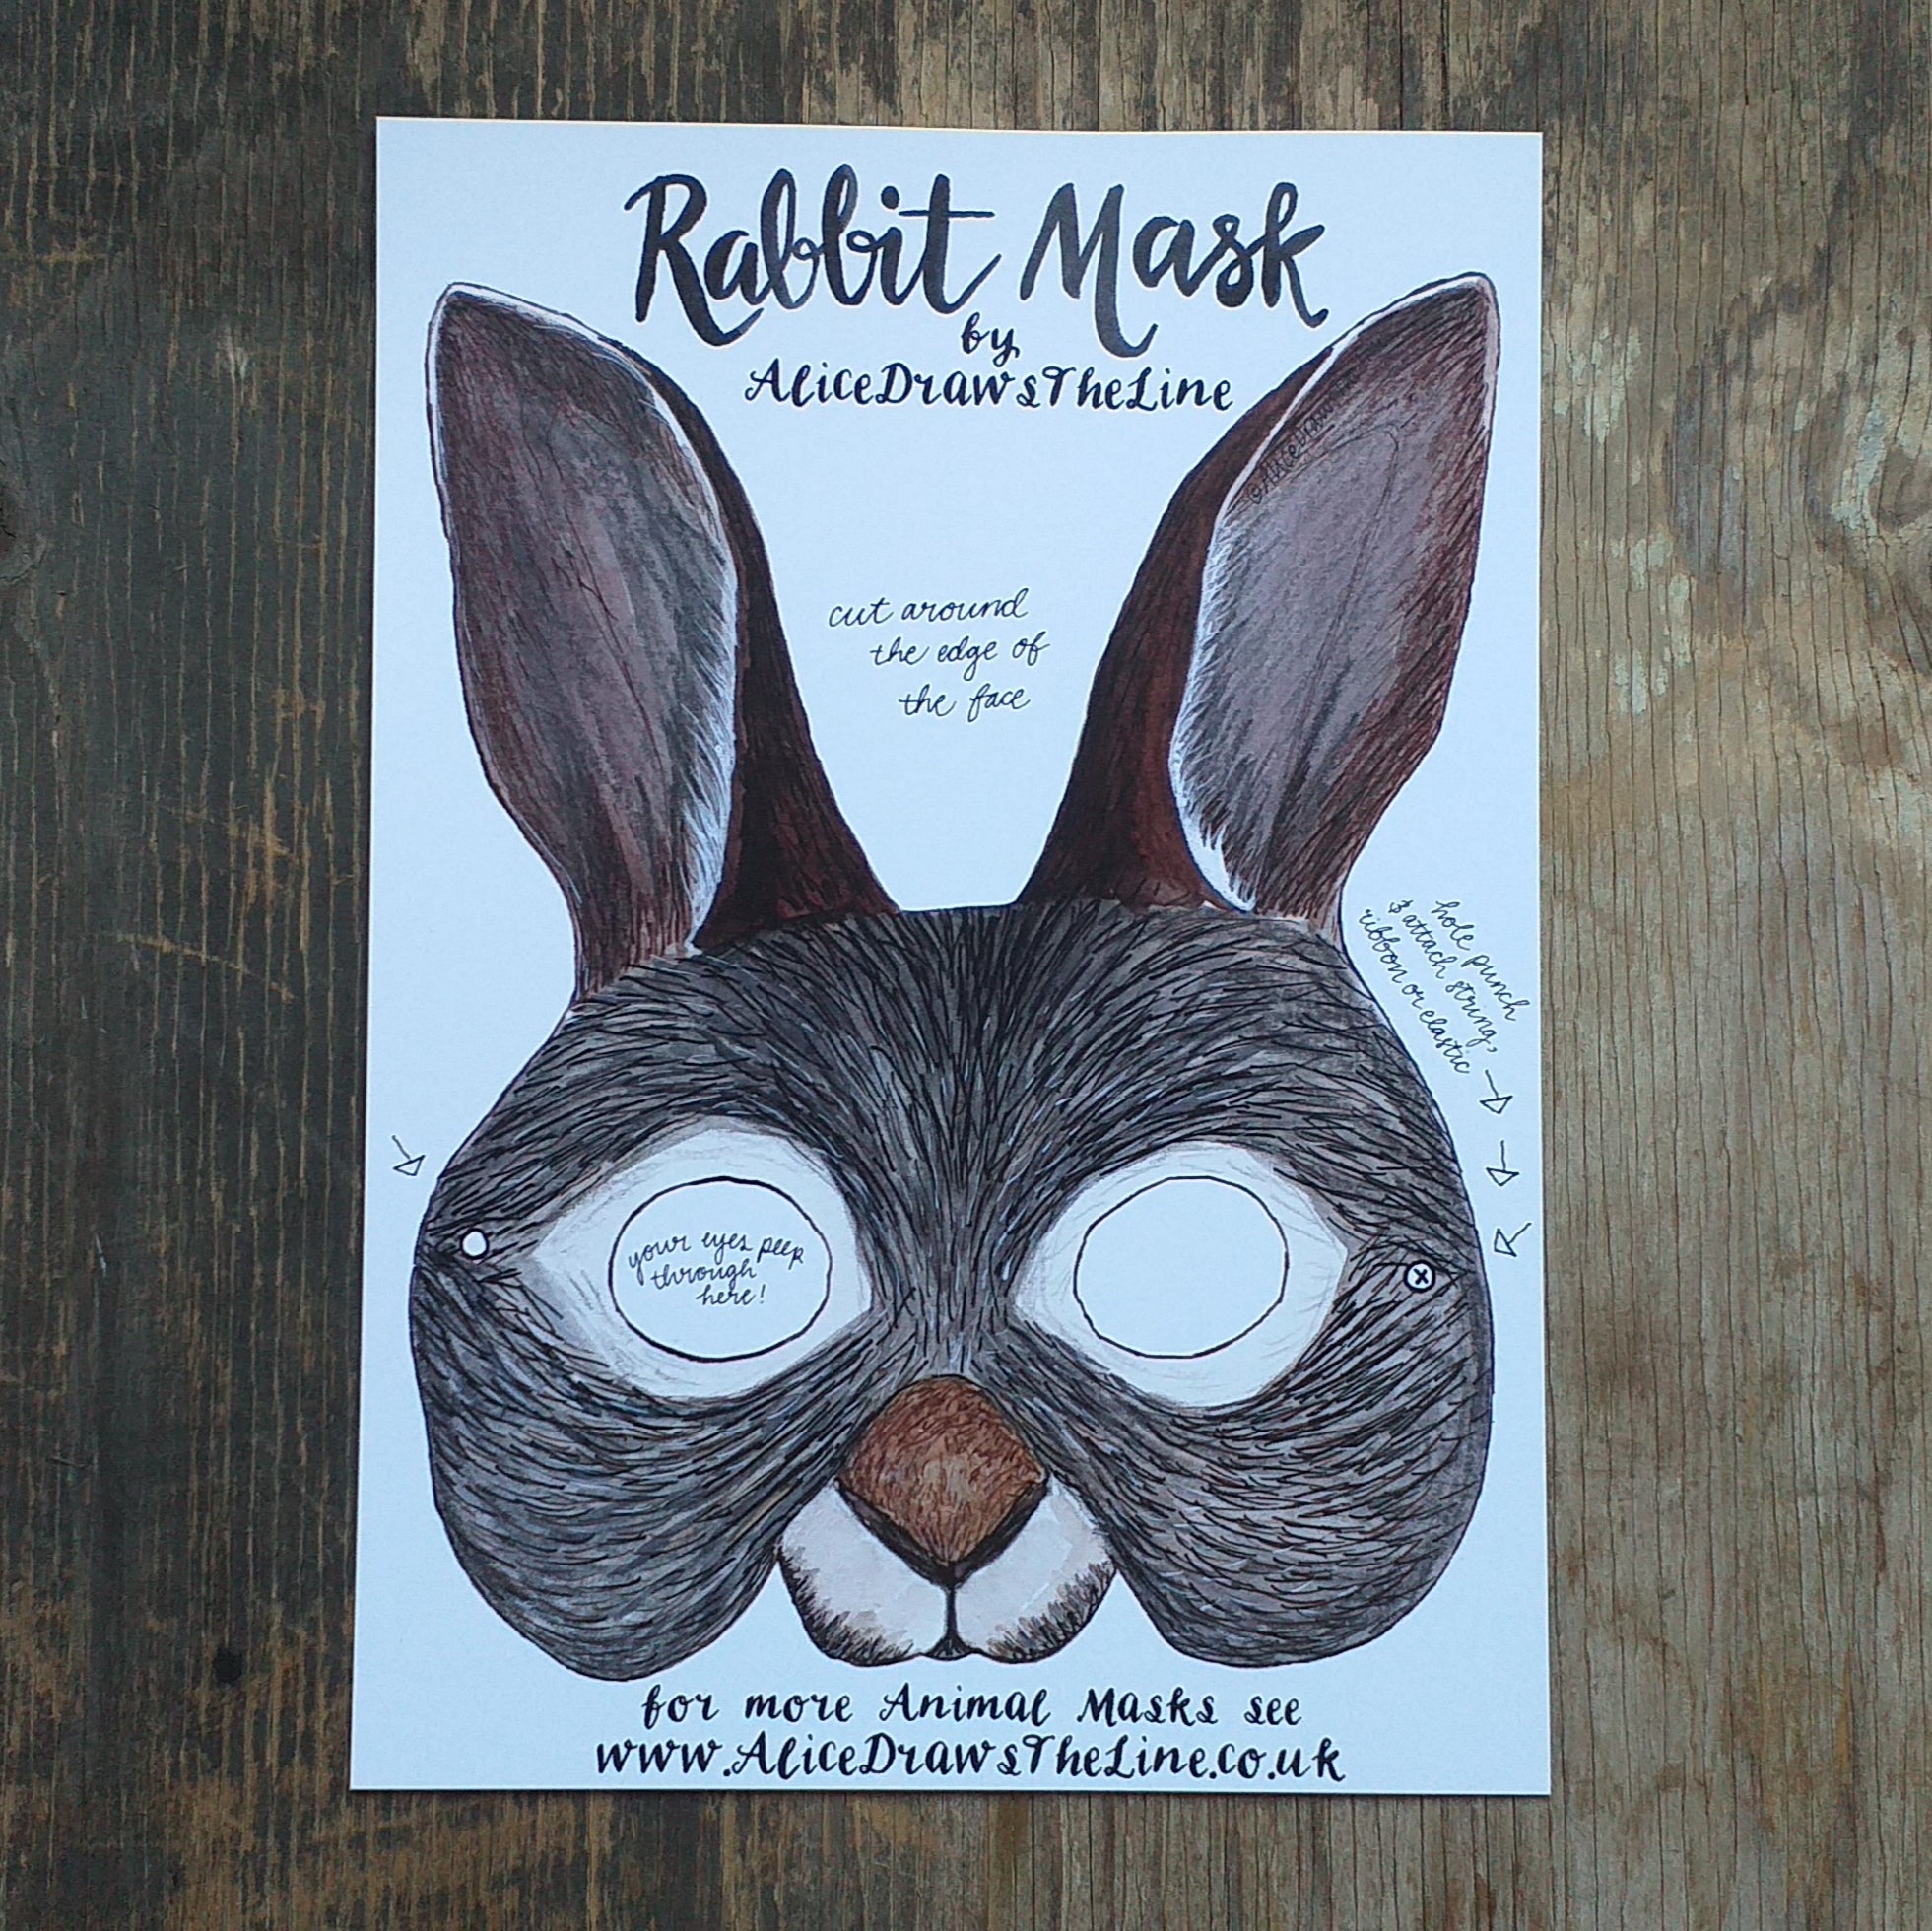 Rabbit Mask
by
AliceDrawsTheLine
cut around
the edge of
the face
hole punch
& attach string,
ribbon or elastic
your eyes peep
through
here!
for more Animal Masks see
www.AliceDrawsTheLine.co.uk